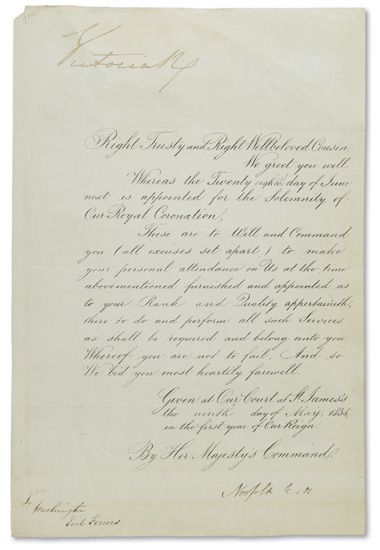 Victoria R
Right Trusty and Right Wellbeloved Cousin,
We greet you well.
Whereas the Twenty eighth day of June
next is appointed for the Solemnity of
Our Royal Coronation,
These are to Will and Command
you (all excuses set apart) to make
your personal attendance on Us at the time
abovementioned furnished and appointed as
to your Rank and Quality appertaineth,
there to do and perform all such Services
as shall be required and belong unto you
Whereof you are not to fail. And so
We bid you most heartily farewell.
Given at Our Court at St. James's
the ninth day of May, 1838,
in the first year of Our Reign.
By Her Majesty's Command.
Norfolk E. M
To
Washington
Earl Ferrers